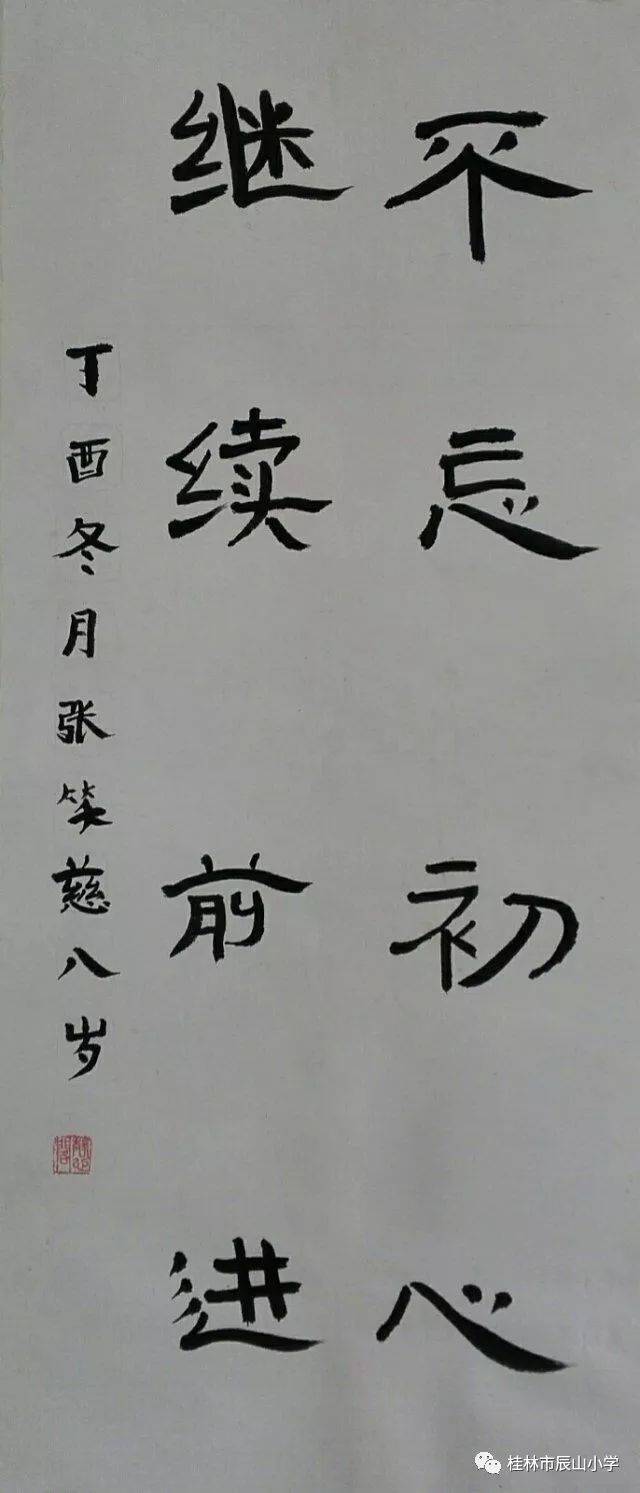 不忘初心
继续前进
丁酉冬月张笑慈八岁
桂林市辰山小学